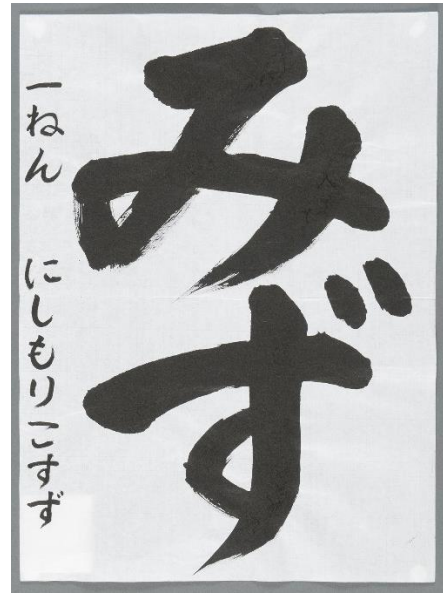 みず
一ねん にしもりこすず